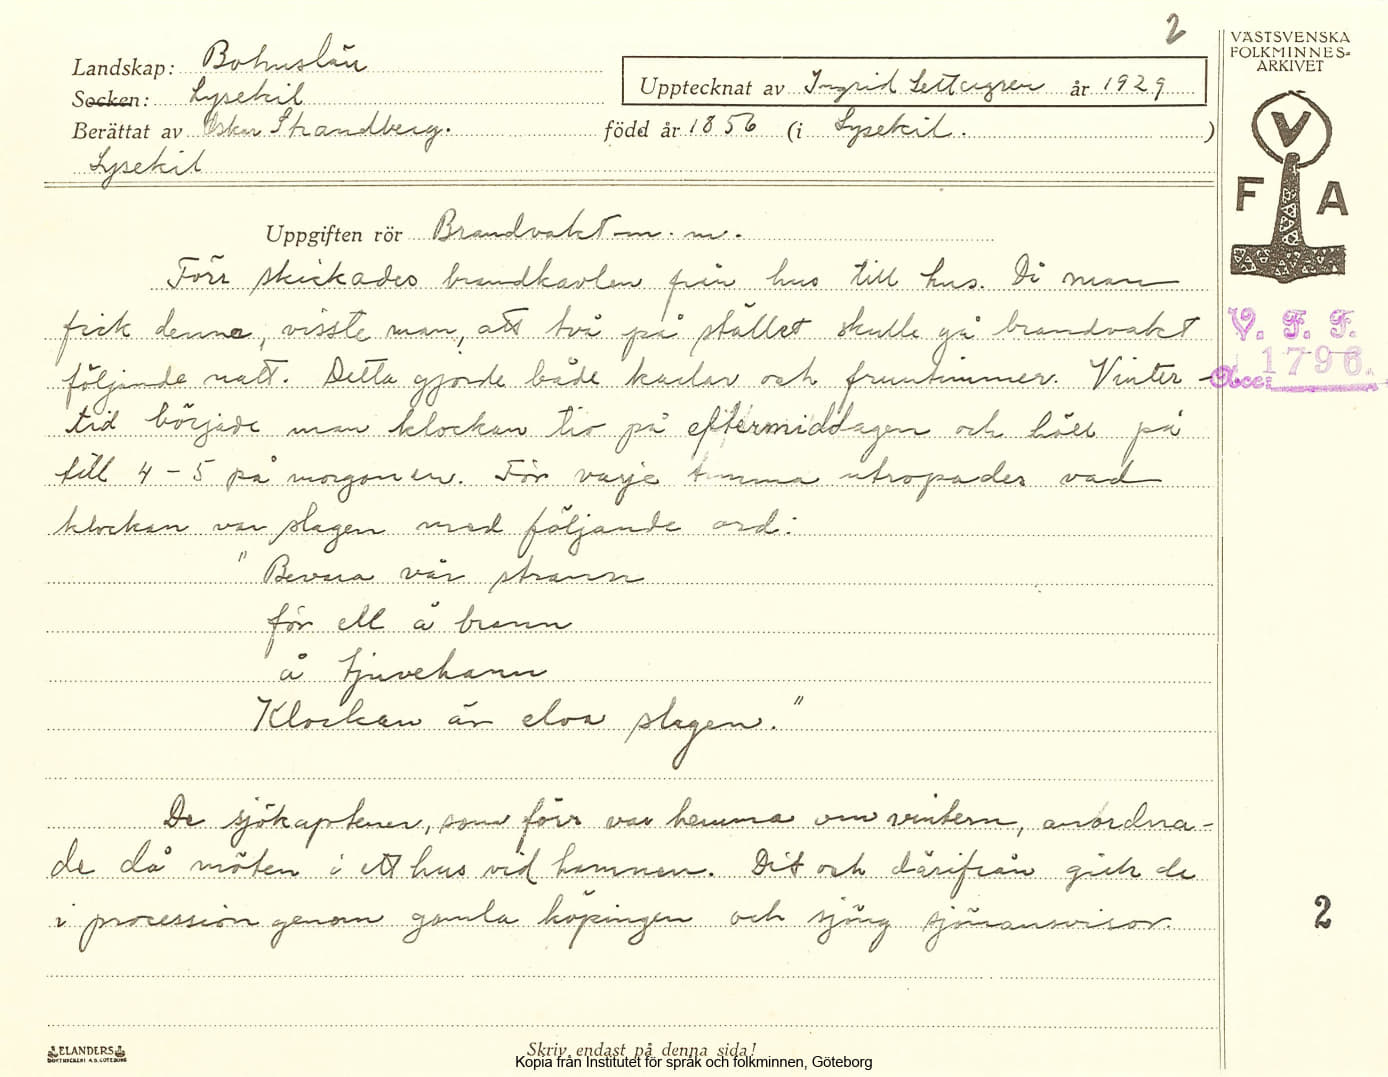 2
VÄSTSVENSKA
FOLKMINNES-
ARKIVET
Landskap: Bohuslän
Upptecknat av Ingrid Settergren år 1929
Socken: Lysekil
Berättat av Oskar Strandberg. född år 1856 (i Lysekil.)
Lysekil
V
F A
Uppgiften rör Brandvakt m. m.
Förr skickades brandkavlen från hus till hus. Då man
fick denna, visste man, att två på stället skulle gå brandvakt
följande natt. Detta gjorde både karlar och fruntimmer. Vinter-
tid började man klockan tio på eftermiddagen och höll på
till 4 - 5 på morgonen. För varje timma utropades vad
klockan var slagen med följande ord:
"Bevara vår strann
för ell å brann
å tjuvehann
Klockan är elva slagen."
V. F. F.
Acc: 1796.
De sjökaptener, som förr var hemma om vintern, anordna-
de då möten i ett hus vid hamnen. Dit och därifrån gick de
i procession genom gamla köpingen och sjöng sjömansvisor.
2
ELANDERS
BOKTRYCKERI A.B. GÖTEBORG
Skriv endast på denna sida!
Kopia från Institutet för språk och folkminnen, Göteborg